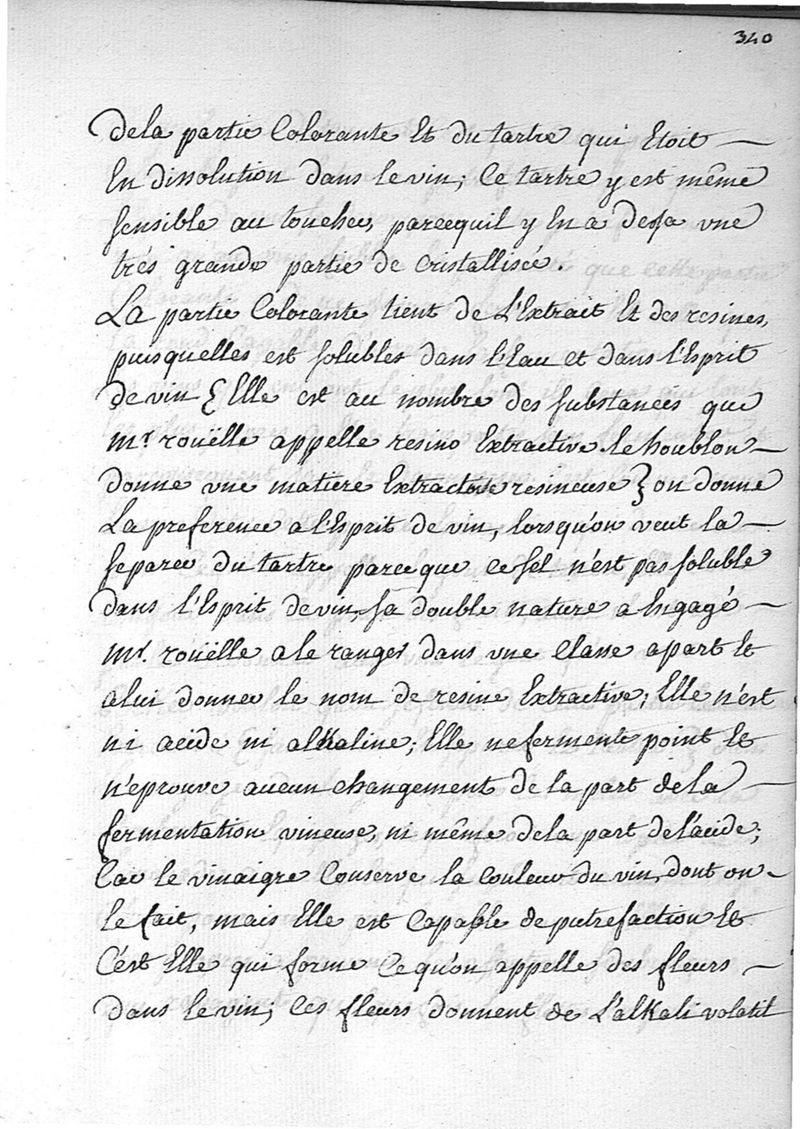 340
dela partie Colorante Et du tartre qui Etoit —
En dissolution dans le vin; Ce tartre y est même
sensible au toucher, parcequil y En a deja vne
trés grande partie de cristallisée
La partie Colorante tient de L'Extrait Et des resines,
puisquelles est solubles dans l'Eau et dans l'Esprit
de vin { Elle est au nombre des substances que
mr. roüelle appelle resino Extractive. le houblon —
donne vne matiere Extracto resineuse } on donne
La preference a l'Esprit de vin, lorsqu'on veut la —
separer du tartre parceque ce sel n'est pas soluble
dans l'Esprit de vin, sa double nature a Engagé —
mr. roüelle a le ranger dans vne Classe apart Et
a lui donner le nom de resine Extractive; Elle n'est
ni acide ni alkaline; Elle ne fermente point Et
n'eprouve aucun changement de la part de la —
fermentation vineuse, ni même dela part de l'acide;
Car le vinaigre Conserve la couleur du vin, dont on —
le fait, mais Elle est Capable de putrefaction Et
C'est Elle qui forme Ce qu'on appelle des fleurs —
dans le vin; Ces fleurs donnent de L'alkali volatil